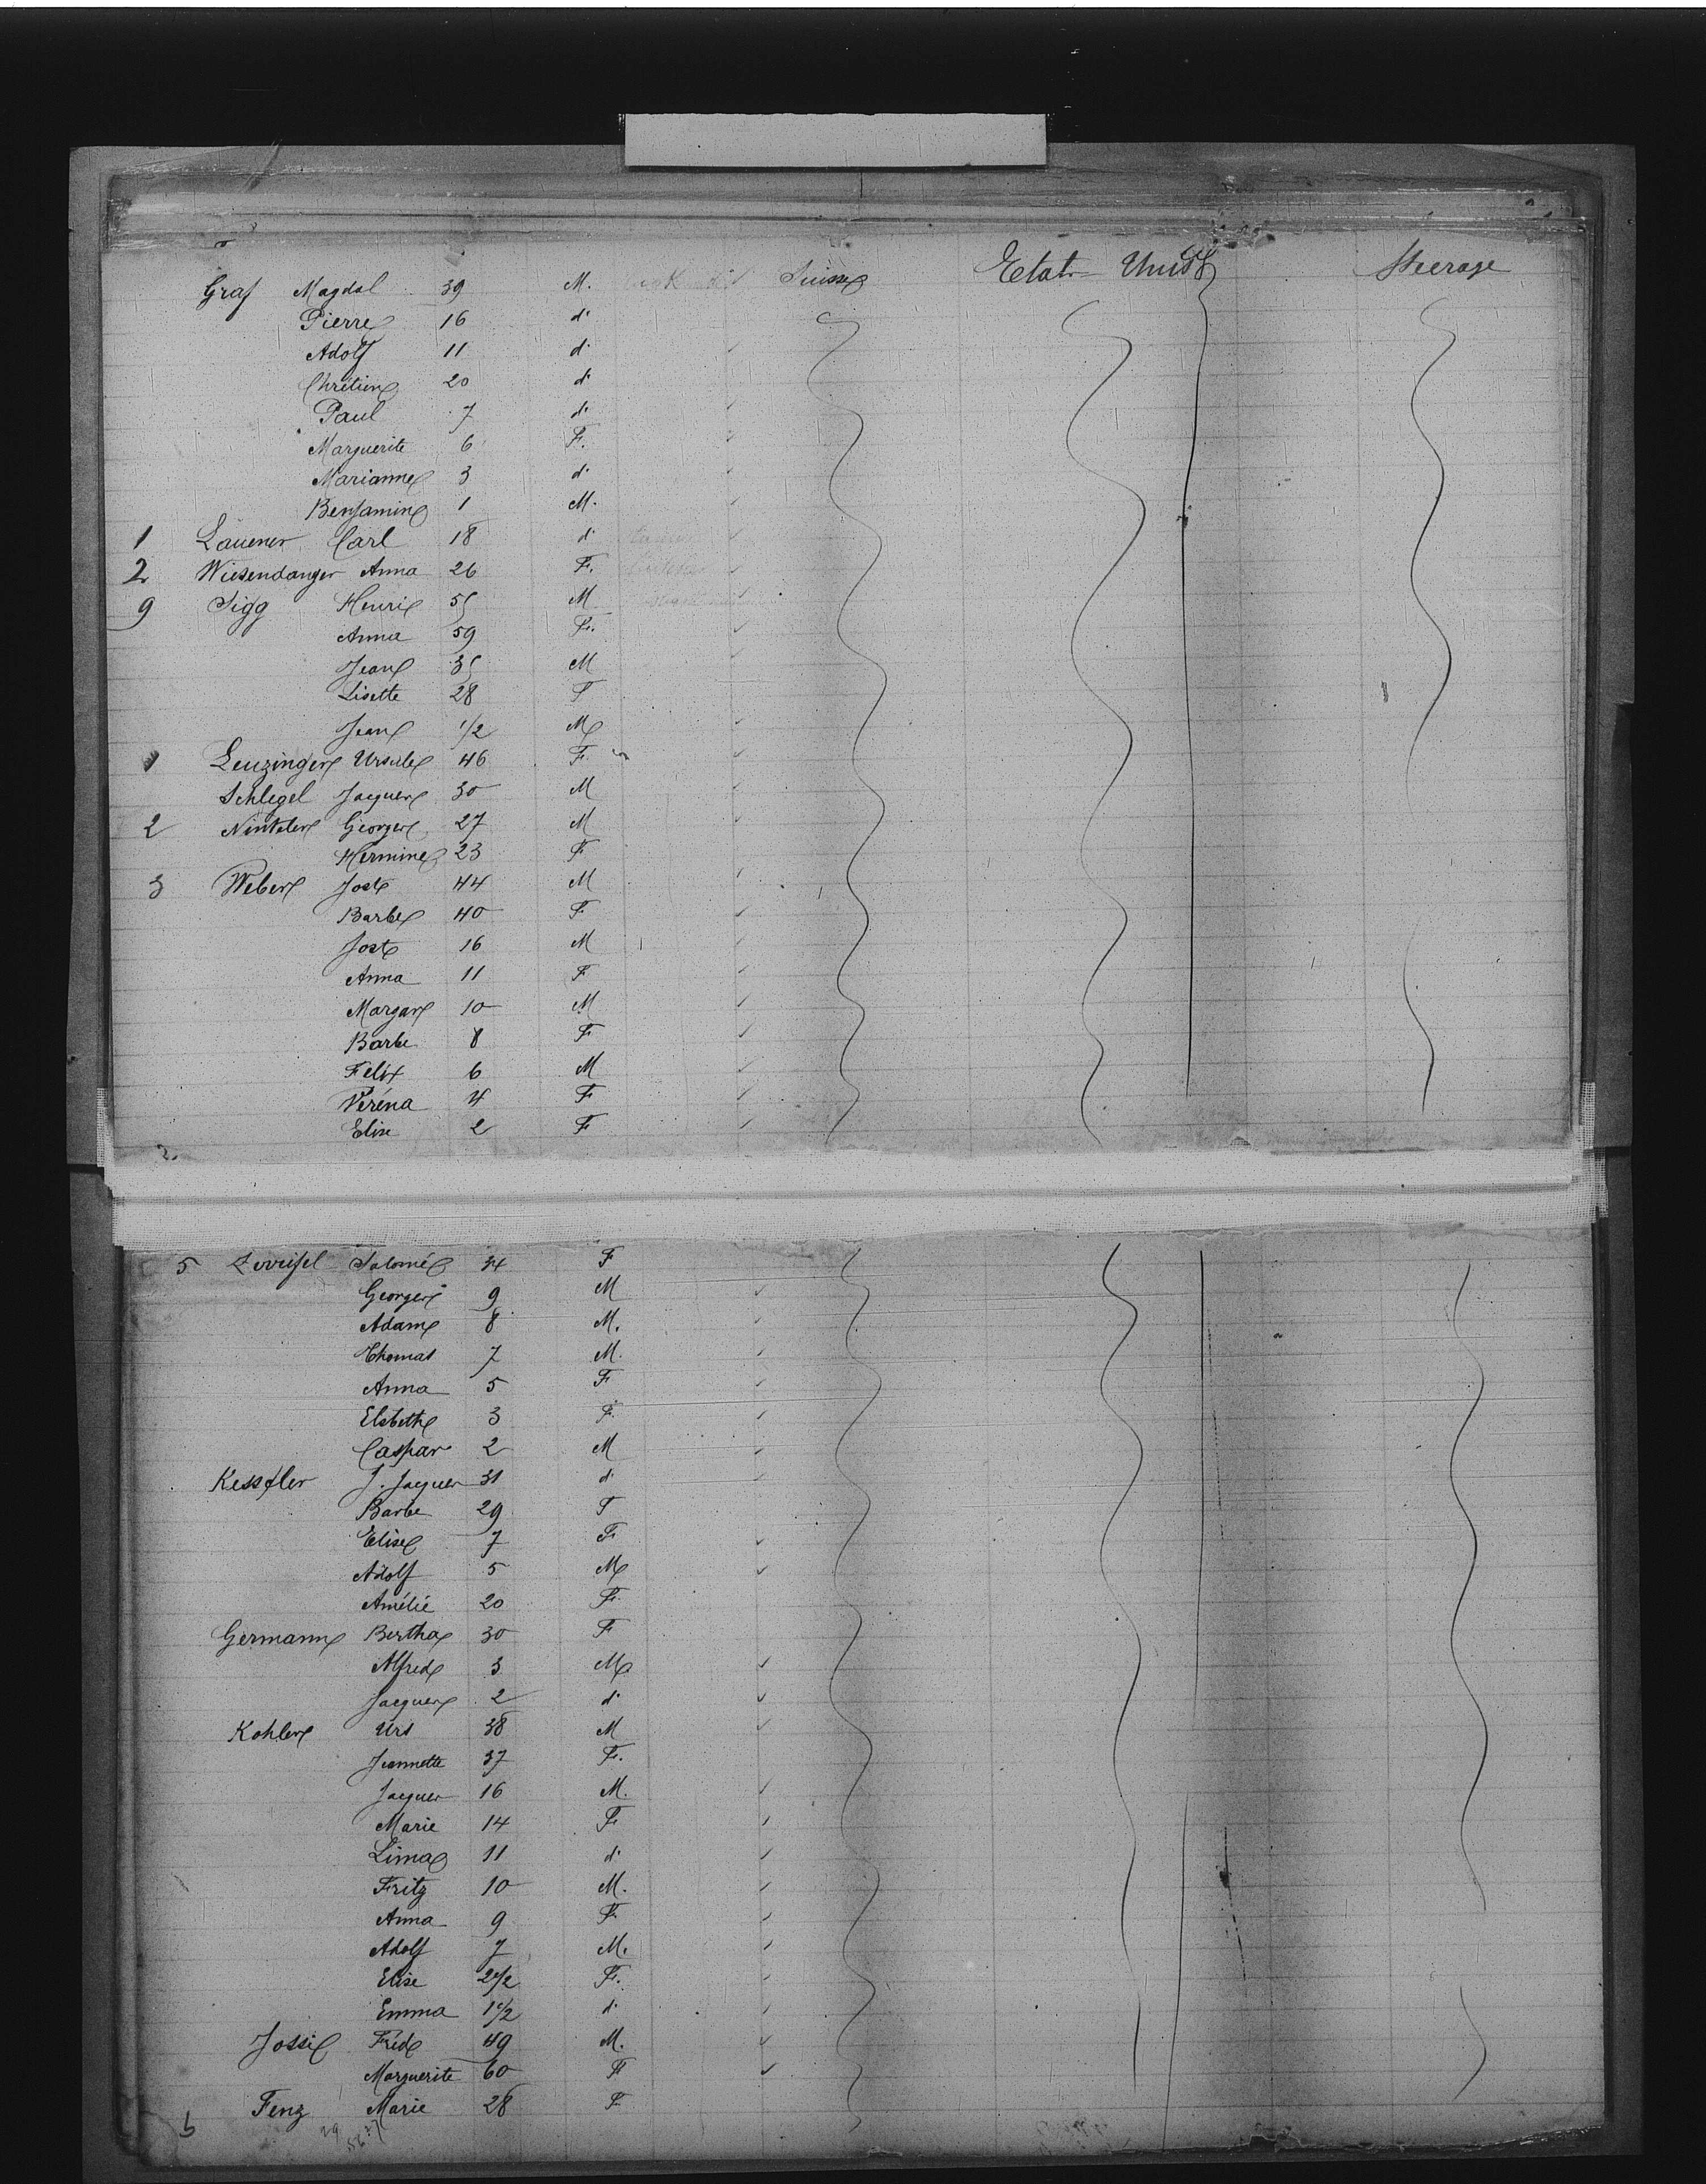 Graf Magdal 39 M. Suisse Etats-Unis Steerage
Pierre 16 d°
Adolf 11 d°
Chrétien 20 d°
Paul 7 d°
Marguerite 6 F.
Marianne 3 d°
Benjamin 1 M.
1 Lauener Carl 18 d°
2 Wiesendanger Anna 26 F.
9 Sigg Henri 55 M
Anna 59 F.
Jean 35 M
Lisette 28 F
Jean 1/2 M
1 Leuzinger Ursule 46 F.
Schlegel Jacques 30 M
2 Georges 27 M
Hermine 23 F
3 Weber Jost 44 M
Barbe 40 F
Jost 16 M
Anna 11 F
Margar 10 M
Barbe 8 F
Felix 6 M
Veréna 4 F
Elise 2 F
2.
5 Salomé 34 F
Georges 9 M
Adam 8 M.
Thomas 7 M.
Anna 5 F
Elsbeth 3 F.
Caspar 2 M
Kessler J. Jacques 31 d°
Barbe 29 F
Elise 7 F
Adolf 5 M
Amélie 20 F.
Germann Bertha 30 F
Alfred 3 M
Jacques 2 d°
Kohler Urs 38 M
Jeannette 37 F.
Jacques 16 M.
Marie 14 F
Lina 11 d°
Fritz 10 M.
Anna 9 F
Adolf 7 M.
Elise 2 1/2 F.
Emma 1 1/2 d°
Jossi Fréd 49 M.
Marguerite 60 F
Fenz Marie 28 F